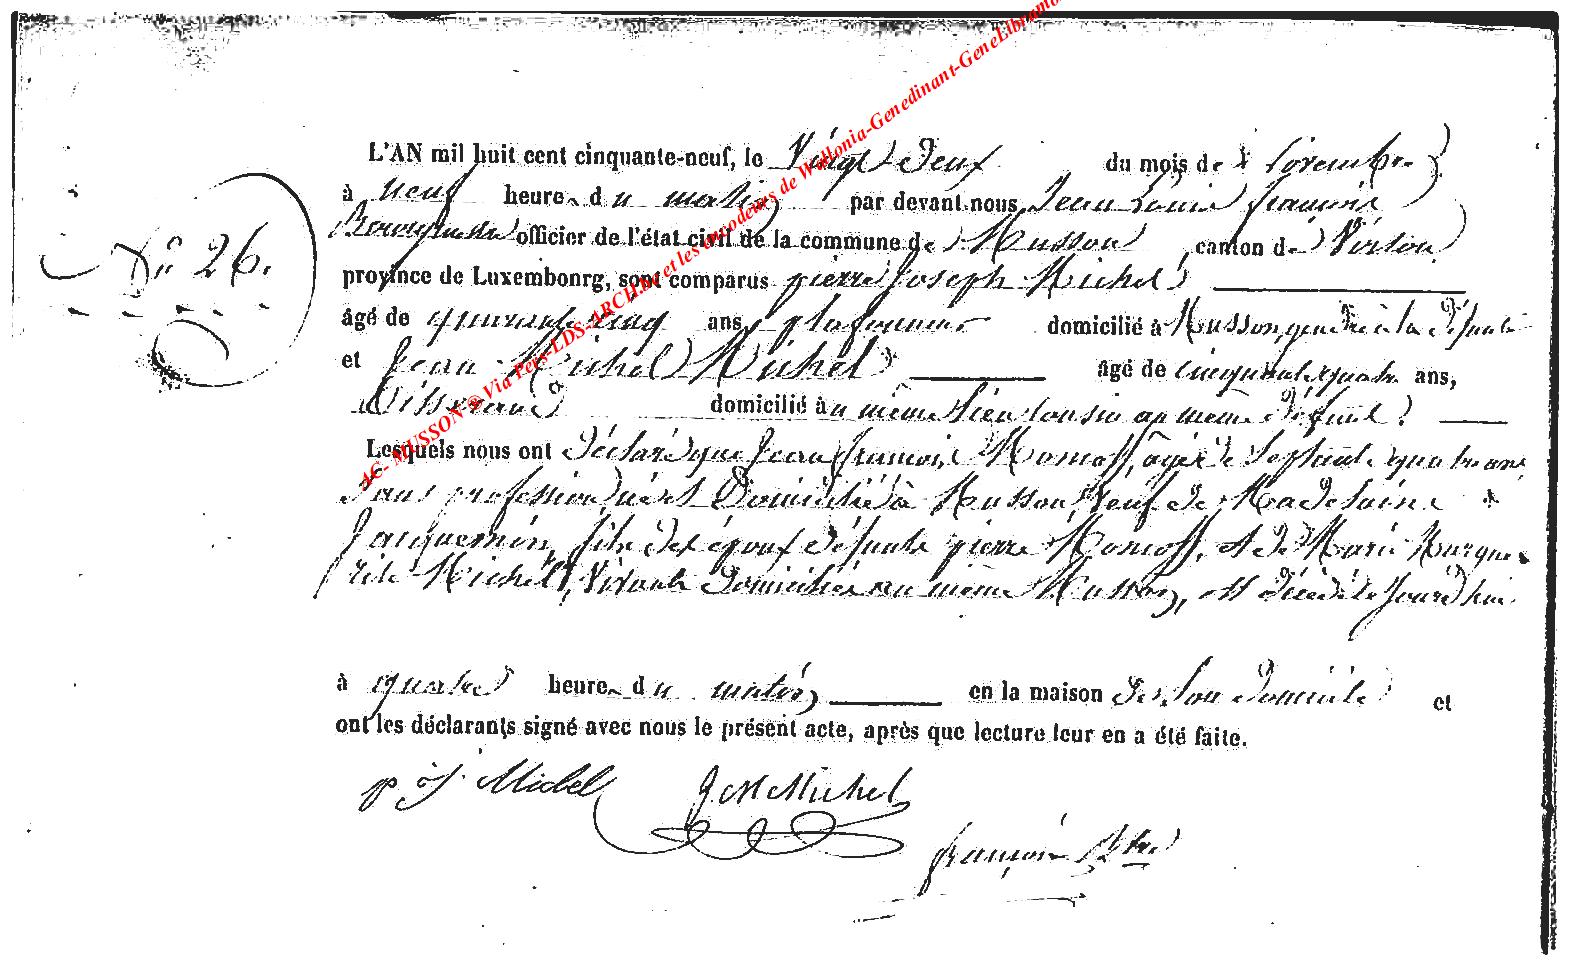 AC- MUSSON @ Via Pers-LDS-ARCH.be et les encodeurs de Wallonia-Genedinant-GeneLibramo
N° 26.
L'AN mil huit cent cinquante-neuf, le Vingt Deux du mois de Novembre
à neuf heures du matin par devant nous Jean Louis françois
officier de l'état civil de la commune de Musson, canton de Virton
province de Luxembourg, sont comparus pierre Joseph Michel
âgé de quarante cinq ans, plafonneur domicilié à Musson, gendre à la Défunte
et Jean Michel Michel âgé de cinquante quatre ans,
Tisserand domicilié au même Lieu Cousin au même Défunt.
Lesquels nous ont Déclaré que Jean françois, âgé de Septante quatre ans
Sans profession né et Domicilié à Musson, Veuf de Madelaine
Jacquemin, fils des époux Défunts pierre et de Marie Margue
rite Michel, Vivants Domiciliés au même Musson, est Décédé ce Jourd'hui
à quatre heures du matin en la maison de Son Domicile et
ont les déclarants signé avec nous le présent acte, après que lecture leur en a été faite.
p J Michel J M Michel
françois